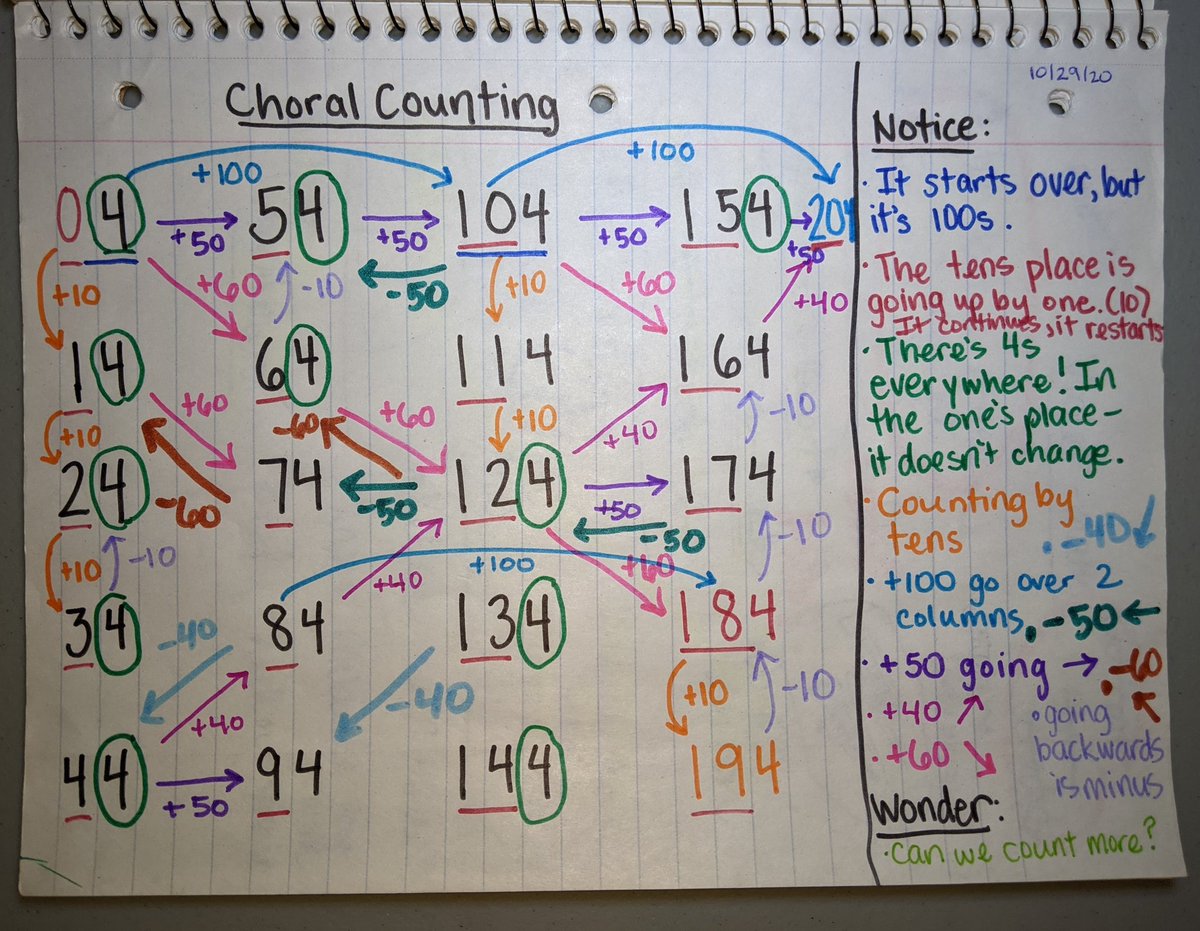 10/29/20
Choral Counting
+100 +100
04 +50 54 +50 104 +50 154 +50 204
+10 +60 -10 -50 +10 +60 +40
14 64 114 164
+10 +60 -60 +60 +10 +40 -10
24 -60 74 -50 124 +50 174
-50
+10 -10 +40 +100 +60 -10
34 -40 84 134 184
+40 -40 +10 -10
44 +50 94 144 194
Notice:
· It starts over, but
it's 100s.
· The tens place is
going up by one. (10)
It continues, it restarts
· There's 4s
everywhere! In
the one's place –
it doesn't change.
· Counting by
tens
· -40 ↙
· +100 go over 2
columns
· -50 ←
· +50 going →
· -60 ↖
· +40 ↗
· +60 ↘
· going
backwards
is minus
Wonder:
· can we count more?